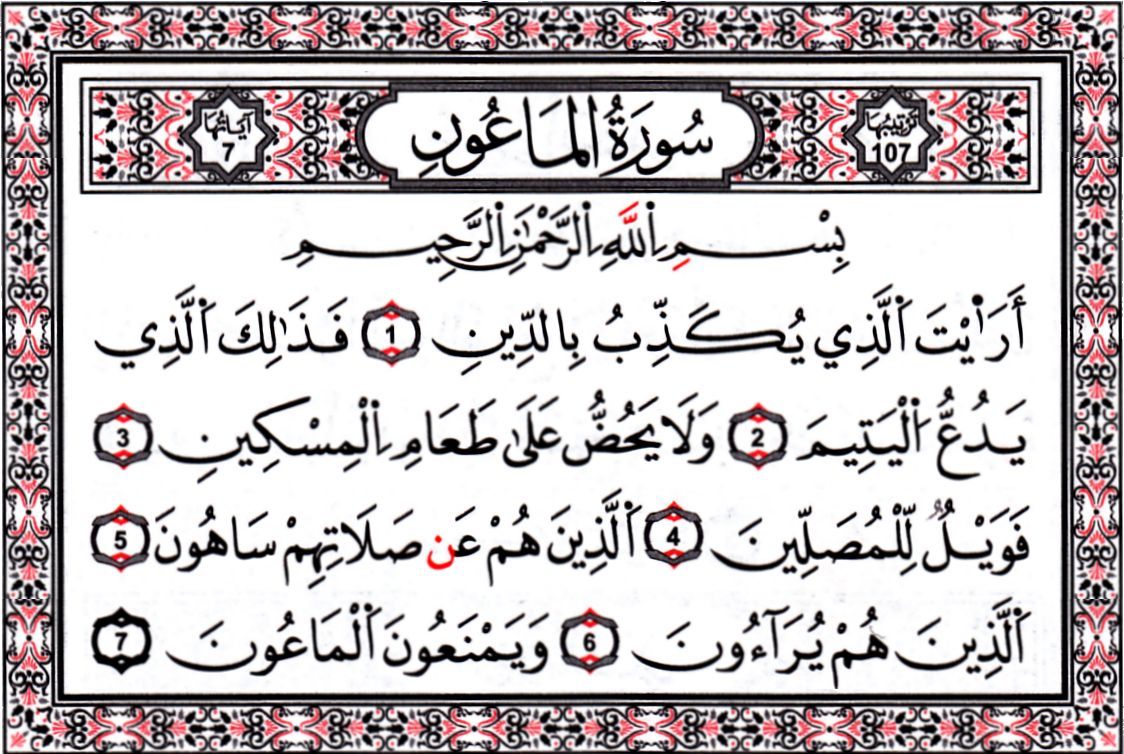 ترتيبها 107
سُورَةُ المَاعُونِ
آياتُهَا 7
بِسْمِ ٱللَّهِ ٱلرَّحْمَٰنِ ٱلرَّحِيمِ
أَرَأَيْتَ ٱلَّذِي يُكَذِّبُ بِالدِّينِ 1 فَذَٰلِكَ ٱلَّذِي
يَدُعُّ ٱلْيَتِيمَ 2 وَلَا يَحُضُّ عَلَىٰ طَعَامِ ٱلْمِسْكِينِ 3
فَوَيْلٌ لِّلْمُصَلِّينَ 4 ٱلَّذِينَ هُمْ عَن صَلَاتِهِمْ سَاهُونَ 5
ٱلَّذِينَ هُمْ يُرَآءُونَ 6 وَيَمْنَعُونَ ٱلْمَاعُونَ 7